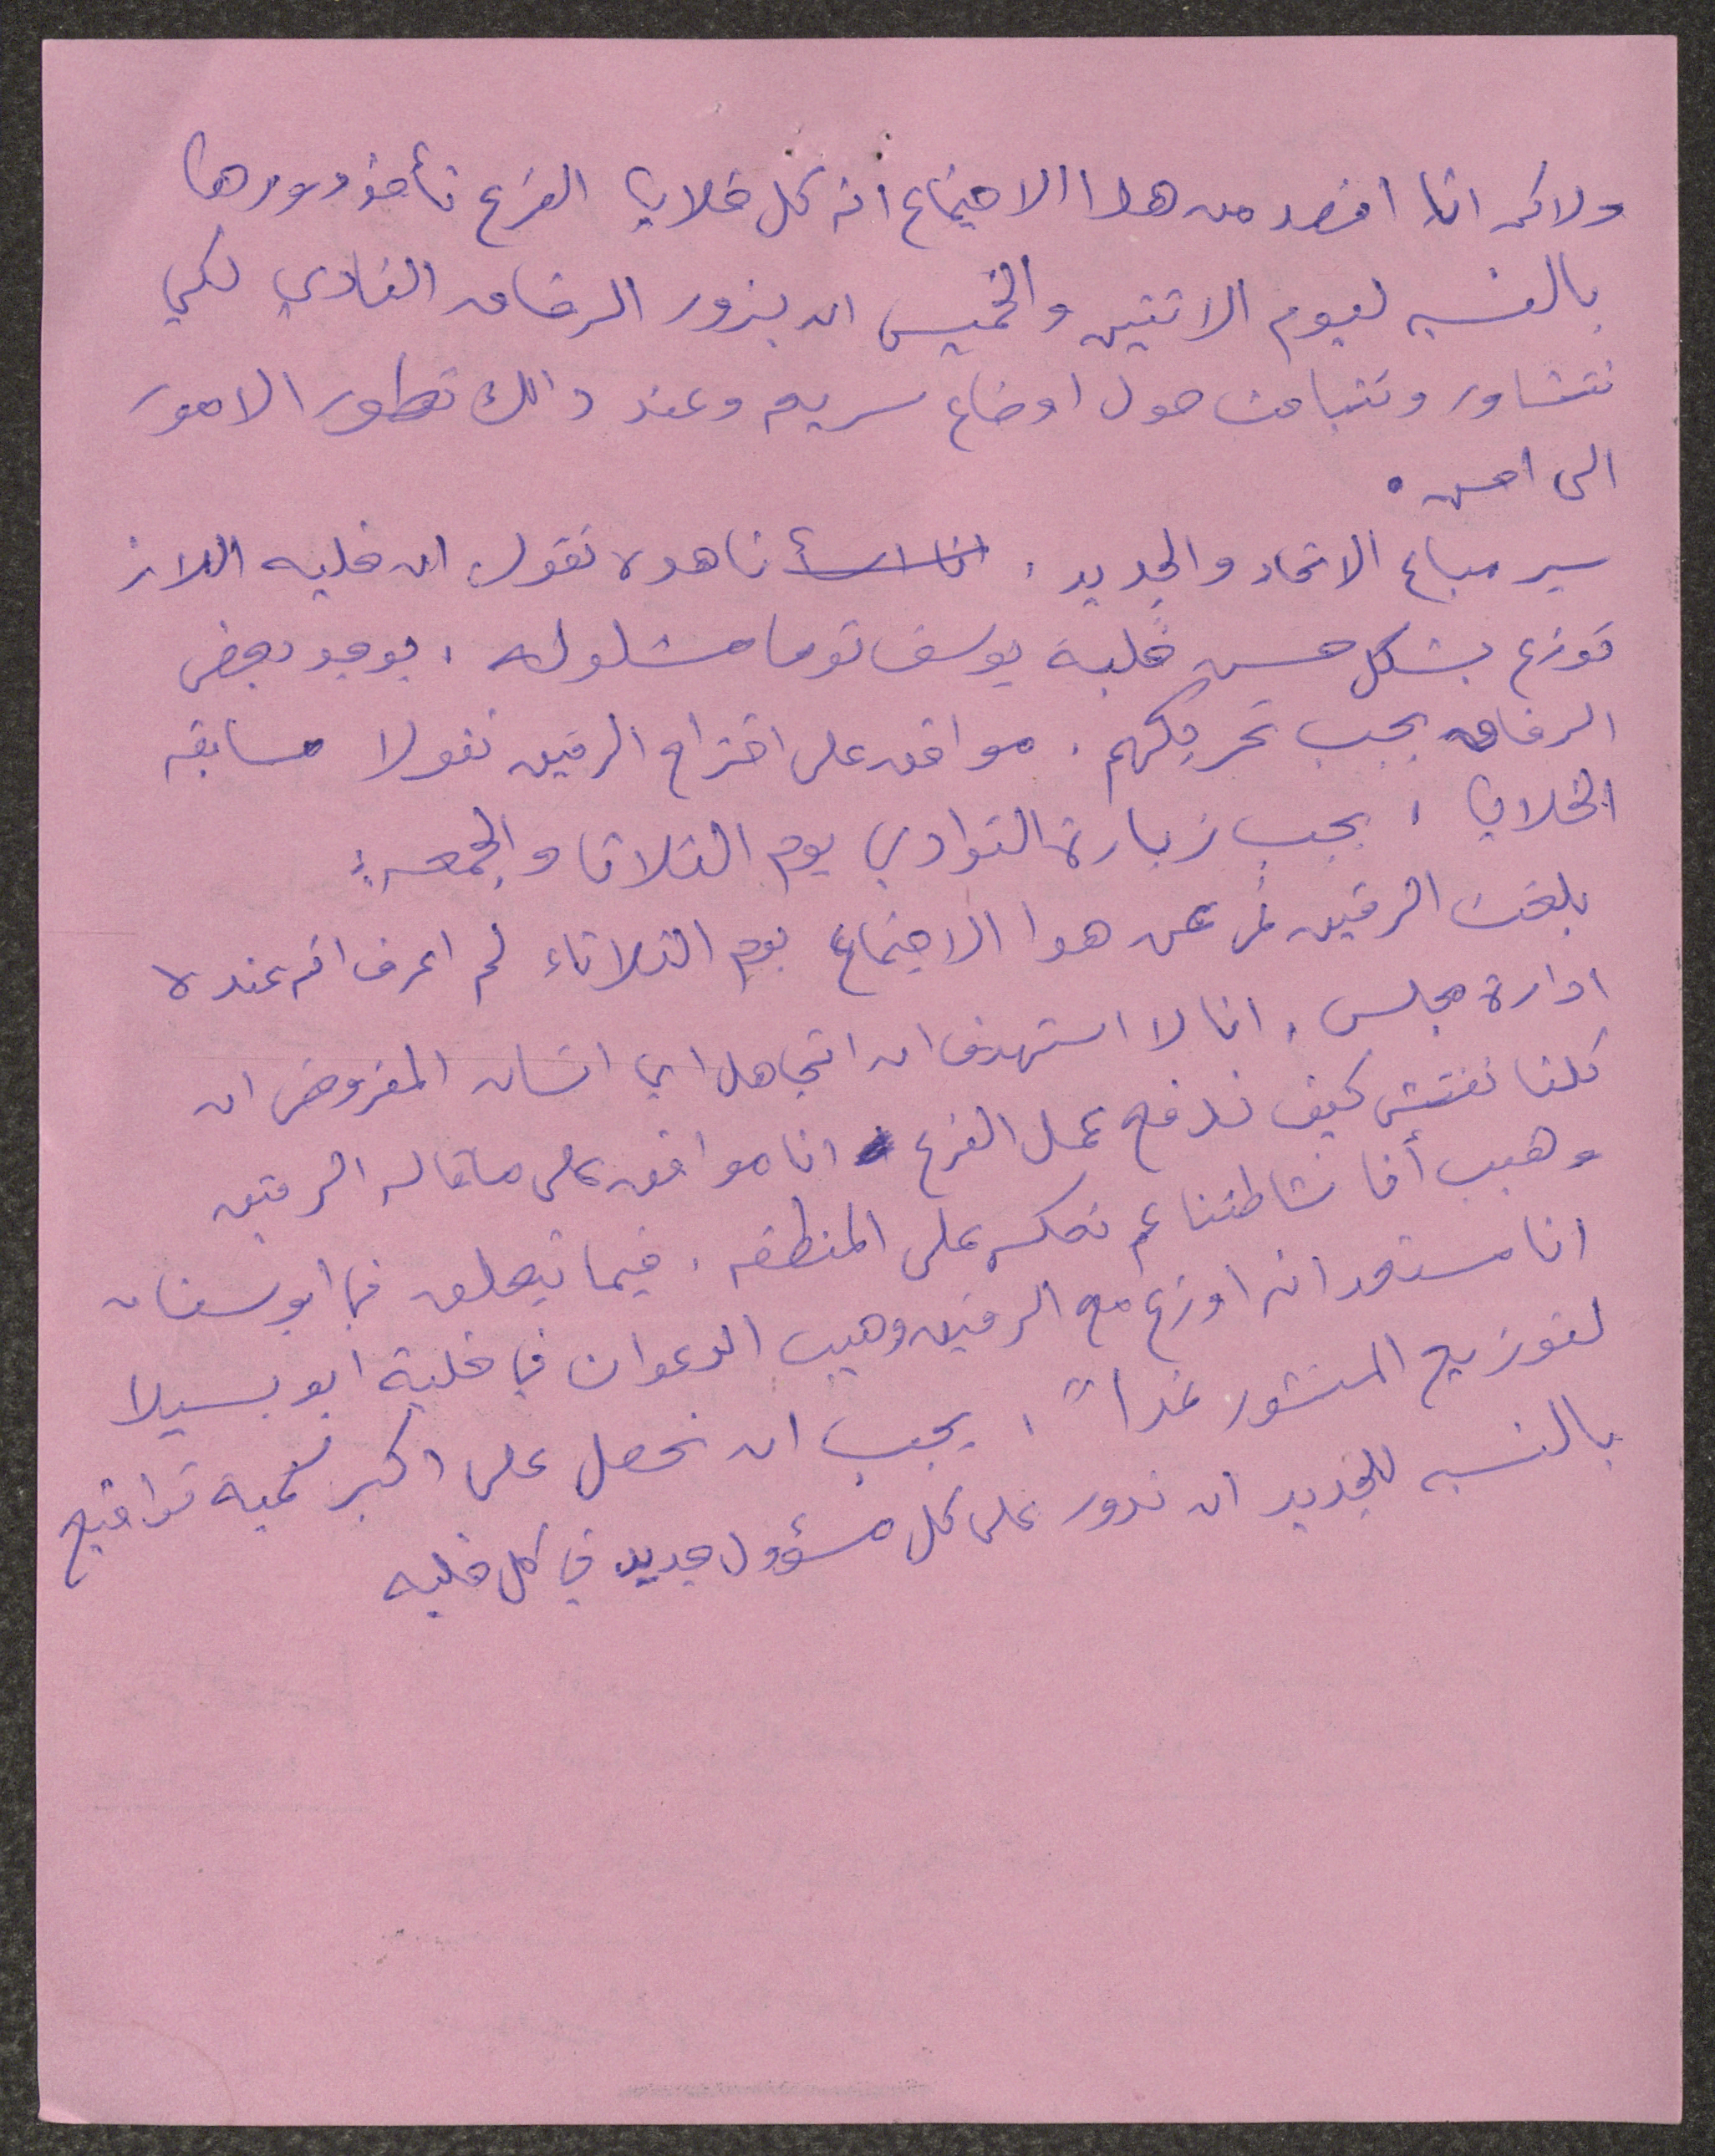 ولاكن انا اقصد من هذا الاجتماع انه كل خلايا الفرع تأخذ دورها
بالنسبه ليوم الاثنين والخميس ان يزور الرفاق النادي لكي
نتشاور ونتباحث حول اوضاع سريه وعند ذالك تطور الامور
الى احسن .
سير مباع الاتحاد والجديد . ناهده تقول ان خليه اللاز
توزع بشكل حسن خلية يوسف توما مشلوله ، يوجد بعض
الرفاق يجب تحريكهم . موافق على اقتراح الرفيق نقولا مسابقه
الخلايا ، يجب زيارة النوادي يوم الثلاثا والجمعه :
بلغت الرفيق نمر عن هذا الاجتماع يوم الثلاثاء لم اعرف انه عنده
ادارة مجلس . انا لا استهدف ان اتجاهل اي انسان المفروض ان
كلنا نفتش كيف ندفع عمل الفرع انا موافق على ما قاله الرفيق
وهيب أنا نشاطتنا عم نعكسه على المنطقه . فيما يتعلق في ابو سنان
انا مستعد انه اوزع مع الرفيق وهيب الدعوات في خلية ابو بسيلا
لتوزيع المنشور غداً ، يجب ان نحصل على اكبر كمية تواقيع
بالنسبه للجديد ان ندور على كل مسؤول جديد في كل خليه